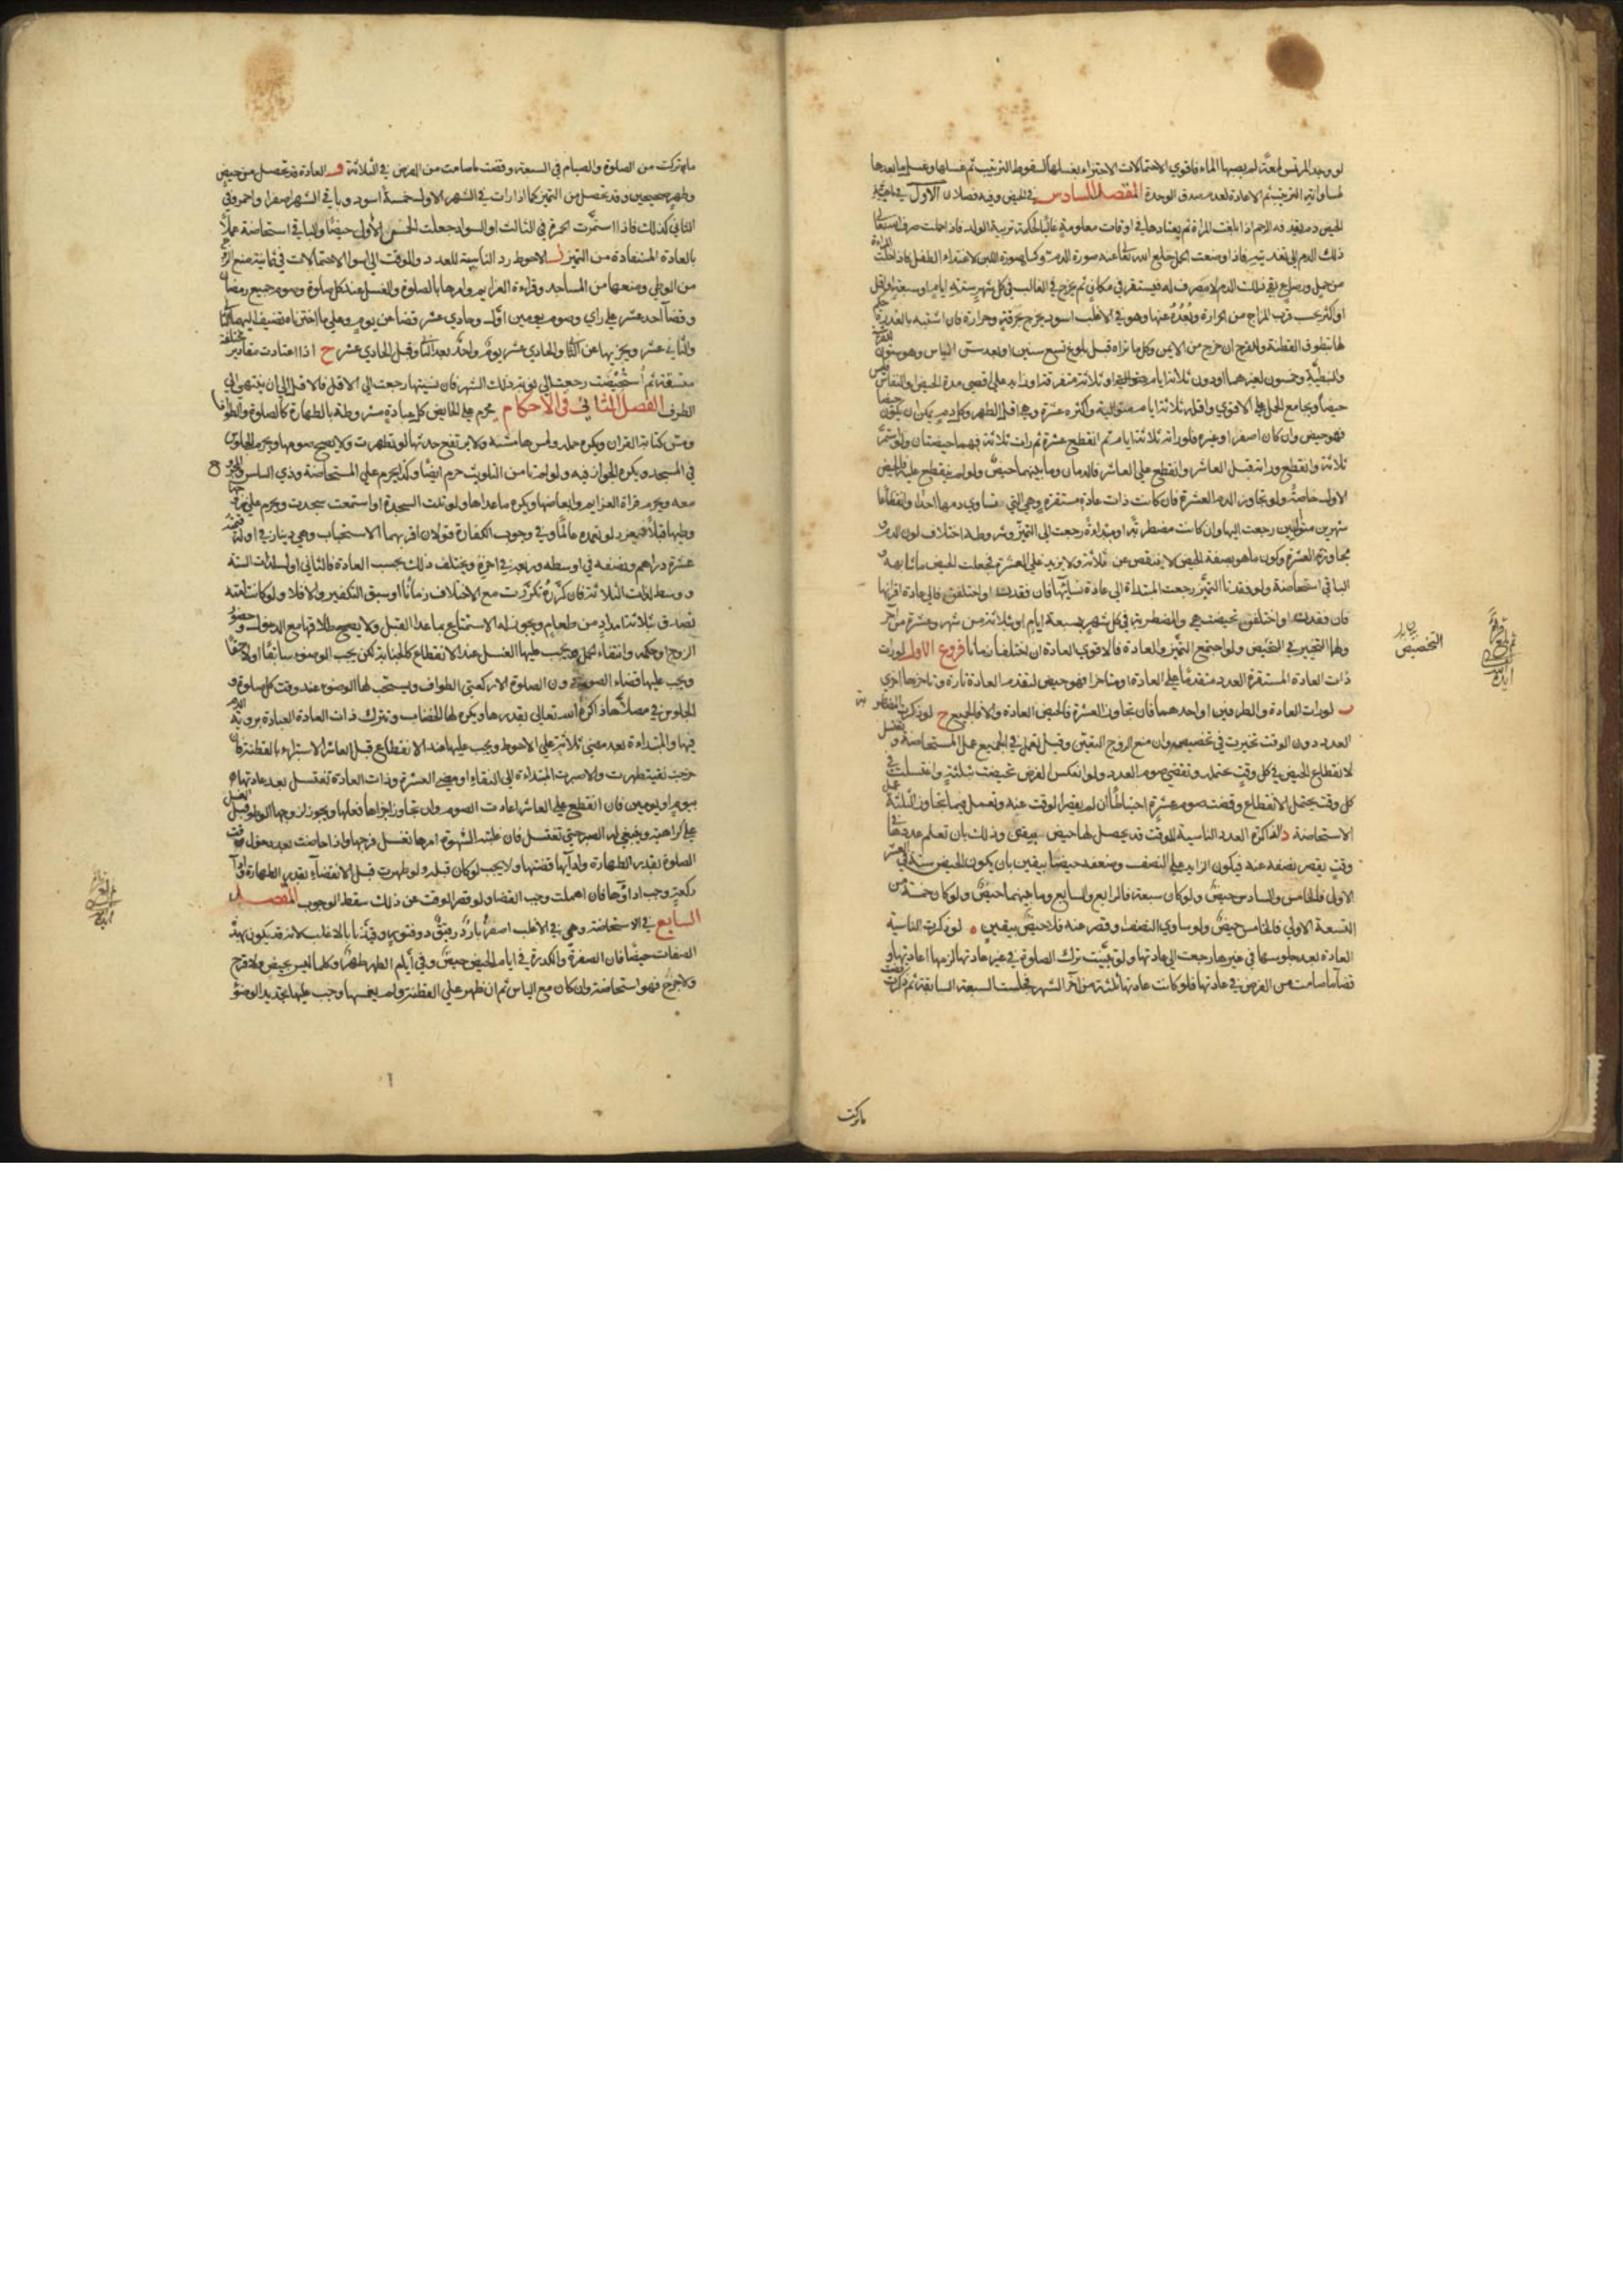 لو وجد المرتمس لمعة لم يصبها الماء فاقوي الاحتمالات الاجتزاء بغسلها لسقوط الترتيب ثم غسلها وغسل ما بعدها
لمساواته الترتيب ثم الاعادة لعدم صدق الوحدة المقصد السادس في الحيض وفيه فصلان الاول في ماهيته
الحيض دم يقذفه الرحم اذا بلغت المراة ثم يعتادها في اوقات معلومة غالبا لحكمة تربية الولد فاذا حملت صرف الله تعالي
ذلك الدم الي تغذيته فاذا وضعت الحمل خلع الله تعالي عنه صورة الدم وكساه صورة اللبن لاغتذاء الطفل فاذا خلت المراة
من حمل ورضاع بقي ذلك الدم لا مصرف له فيستقر في مكان ثم يخرج في الغالب في كل شهر ستة ايام او سبعة او اقل
او اكثر بحسب قرب المزاج من الحرارة وبعده عنها وهو في الاغلب اسود يخرج بحرقة وحرارة فان اشتبه بالعذرة حكم
لها بتطوق القطنة والقرح ان خرج من الايمن وكل ما تراه قبل بلوغ تسع سنين او بعد سن الياس وهو ستون للقرشية
والنبطية وخمسون لغيرهما او دون ثلاثة ايام او ثلاثة متفرقة او زايد علي اقصي مدة الحيض والنفاس فليس
حيضا ويجامع الحمل علي الاقوي واقله ثلاثة ايام متوالية واكثره عشرة وهي اقل الطهر وكل دم يمكن ان يكون حيضا
فهو حيض وان كان اصفر او غيره فلو رات ثلاثة ايام ثم انقطع عشرة ثم رات ثلاثة فهما حيضتان ولو استمر
ثلاثة وانقطع وراته قبل العاشر وانقطع علي العاشر فالدمان وما بينهما حيض ولو لم ينقطع عليه فالحيض
الاول خاصة ولو تجاوز الدم العشرة فان كانت ذات عادة مستقرة وهي التي تساوي دمها اخذا وانقطاعا
شهرين متواليين رجعت اليها وان كانت مضطربة او مبتداة رجعت الي التميز وشروطه اختلاف لون الدم
مجاوزته العشرة وكون ما هو بصفة الحيض لا ينقص عن ثلاثة ولا يزيد علي العشرة فجعلت الحيض ما شابهه و
الباقي استحاضة ولو فقدتا التميز رجعت المبتداة الي عادة نسائها فان فقدت او اختلفن فالي عادة اقرانها
فان فقدت او اختلفن تحيضت هي والمضطربة في كل شهر بسبعة ايام او ثلاثة من شهر وعشرة من آخر
ولها التخيير في التخصيص ولو اجتمع التميز والعادة فالاقوي العادة ان اختلفا زمانا فروع الاول لو رات
ذات العادة المستقرة العدد متقدما علي العادة او متاخرا فهو حيض لتقدم العادة تارة وتاخرها اخري
ب لو رات العادة والطرفين او احدهما فان تجاوز العشرة فالحيض العادة والا فالجميع ج لو ذكرت المضطربة
العدد دون الوقت تخيرت في تخصيصه وان منع الزوج التعيين وقيل تعمل في الجميع عمل المستحاضة و تغتسل
لانقطاع الحيض في كل وقت محتمل وتقضي صوم العدد ولو انعكس الفرض تحيضت بثلثة واغتسلت في
كل وقت يحتمل الانقطاع وقضت صوم عشرة احتياطا ان لم يقصر الوقت عنه وتعمل فيما تجاوز الثلثة عمل
الاستحاضة د الذاكرة العدد الناسية للوقت قد يحصل لها حيض بيقين وذلك بان تعلم عددها في
وقت يقصر نصفه عنه فيكون الزايد علي النصف وضعفه حيضا بيقين بان يكون الحيض ستة في العشر
الاول فالخامس والسادس حيض ولو كان سبعة فالرابع والسابع وما بينهما حيض ولو كان خمسة من
التسعة الاولي فالخامس حيض ولو ساوي النصف او قصر عنه فلا حيض بيقين ه لو ذكرت الناسية
العادة بعد جلوسها في غيرها رجعت الي عادتها ولو تبينت ترك الصلوة في غير عادتها لزمها اعادتها و
قضاء ما صامت من الفرض في عادتها فلو كانت عادتها ثلثة من آخر الشهر فجلست السبعة السابقة ثم ذكرت قضت
ما تركت
التخصيص
ما تركت من الصلوة والصيام في السبعة وقضت ما صامت من الفرض في الثلاثة و العادة قد تحصل من حيض
وطهر صحيحين وقد تحصل من التميز كما اذا رات في الشهر الاول خمسة اسود وباقي الشهر اصفر او احمر وفي
الثاني كذلك فاذا استمرت الحمرة في الثالث او السواد جعلت الخمس الاول حيضا والباقي استحاضة عملا
بالعادة المستفادة من التميز ز الاحوط رد الناسية للعدد والوقت الي اسوا الاحتمالات في ثمانية منع الزوج
من الوطي ومنعها من المساجد وقراءة العزايم وامرها بالصلوة والغسل عند كل صلوة وصوم جميع رمضان
وقضاء احد عشر علي راي وصوم يومين اول وحادي عشر قضاء عن يوم وعلي ما اخترناه تضيف اليهما الثاني
والثاني عشر ويجزيها عن الثاني والحادي عشر يوم واحد بعد الثاني وقبل الحادي عشر ح اذا اعتادت مقادير مختلفة
متسقة ثم استحيضت رجعت الي نوبة ذلك الشهر فان نسيتها رجعت الي الاقل فالاقل الي ان ينتهي الي
الطرف الفصل الثاني في الاحكام يحرم علي الحايض كل عبادة مشروطة بالطهارة كالصلوة والطواف
ومس كتابة القران ويكره حمله ولمس هامشه ولا يرتفع حدثها لو تطهرت ولا يصح صومها ويحرم الجلوس
في المسجد ويكره الجواز فيه ولو لم تامن التلويث حرم ايضا وكذا يحرم علي المستحاضة وذي السلس والمجروح
معه ويحرم قراة العزايم وابعاضها ويكره ما عداها ولو تلت السجدة او استمعت سجدت ويحرم علي زوجها
وطيها قبلا فيعزر لو تعمده عالما وفي وجوب الكفارة قولان اقربهما الاستحباب وهي دينار في اوله قيمته
عشرة دراهم ونصفه في اوسطه وربعه في اخره ويختلف ذلك بحسب العادة فالثاني اول لذات الستة
ووسط لذات الثلاثة فان كرره تكررت مع الاختلاف زمانا او سبق التكفير والا فلا ولو كانت امته
تصدق بثلاثة امداد من طعام ويجوز له الاستمتاع بما عدا القبل ولا يصح طلاقها مع الدخول وحضور
الزوج او حكمه وانتفاء الحمل ويجب عليها الغسل عند الانقطاع كالجنابة لكن يجب الوضوء سابقا او لاحقا
ويجب عليها قضاء الصوم دون الصلوة الا ركعتي الطواف ويستحب لها الوضوء عند وقت كل صلوة و
الجلوس في مصلاها ذاكرة لله تعالي بقدرها ويكره لها الخضاب وتترك ذات العادة العبادة بروية الدم
فيها والمبتداة بعد مضي ثلاثة علي الاحوط ويجب عليها عند الانقطاع قبل العاشر الاستبراء بالقطنة فان
خرجت نقية طهرت والا صبرت المبتداة الي النقاء او مضي العشرة وذات العادة تغتسل بعد عادتها
بيوم او يومين فان انقطع علي العاشر اعادت الصوم وان تجاوز اجزاها فعلها ويجوز لزوجها الوطو قبل الغسل
علي كراهية وينبغي لها الصبر حتي تغتسل فان غلبته الشهوة امرها بغسل فرجها واذا حاضت بعد دخول وقت
الصلوة بقدر الطهارة وادائها قضتها ولا يجب لو كان قبله ولو طهرت قبل الانقضاء بقدر الطهارة واداء
ركعة وجب اداؤها فان اهملت وجب القضاء ولو قصر الوقت عن ذلك سقط الوجوب المقصد
السابع في الاستحاضة وهي في الاغلب اصفر بارد رقيق ذو فتور وقيدنا بالاغلب لانه قد يكون بهذه
الصفات حيضا فان الصفرة والكدرة في ايام الحيض حيض وفي ايام الطهر طهر وكلما ليس بحيض ولا قرح
ولا جرح فهو استحاضة وان كان مع الياس ثم ان ظهر علي القطنة ولم يغمسها وجب عليها تجديد الوضوء